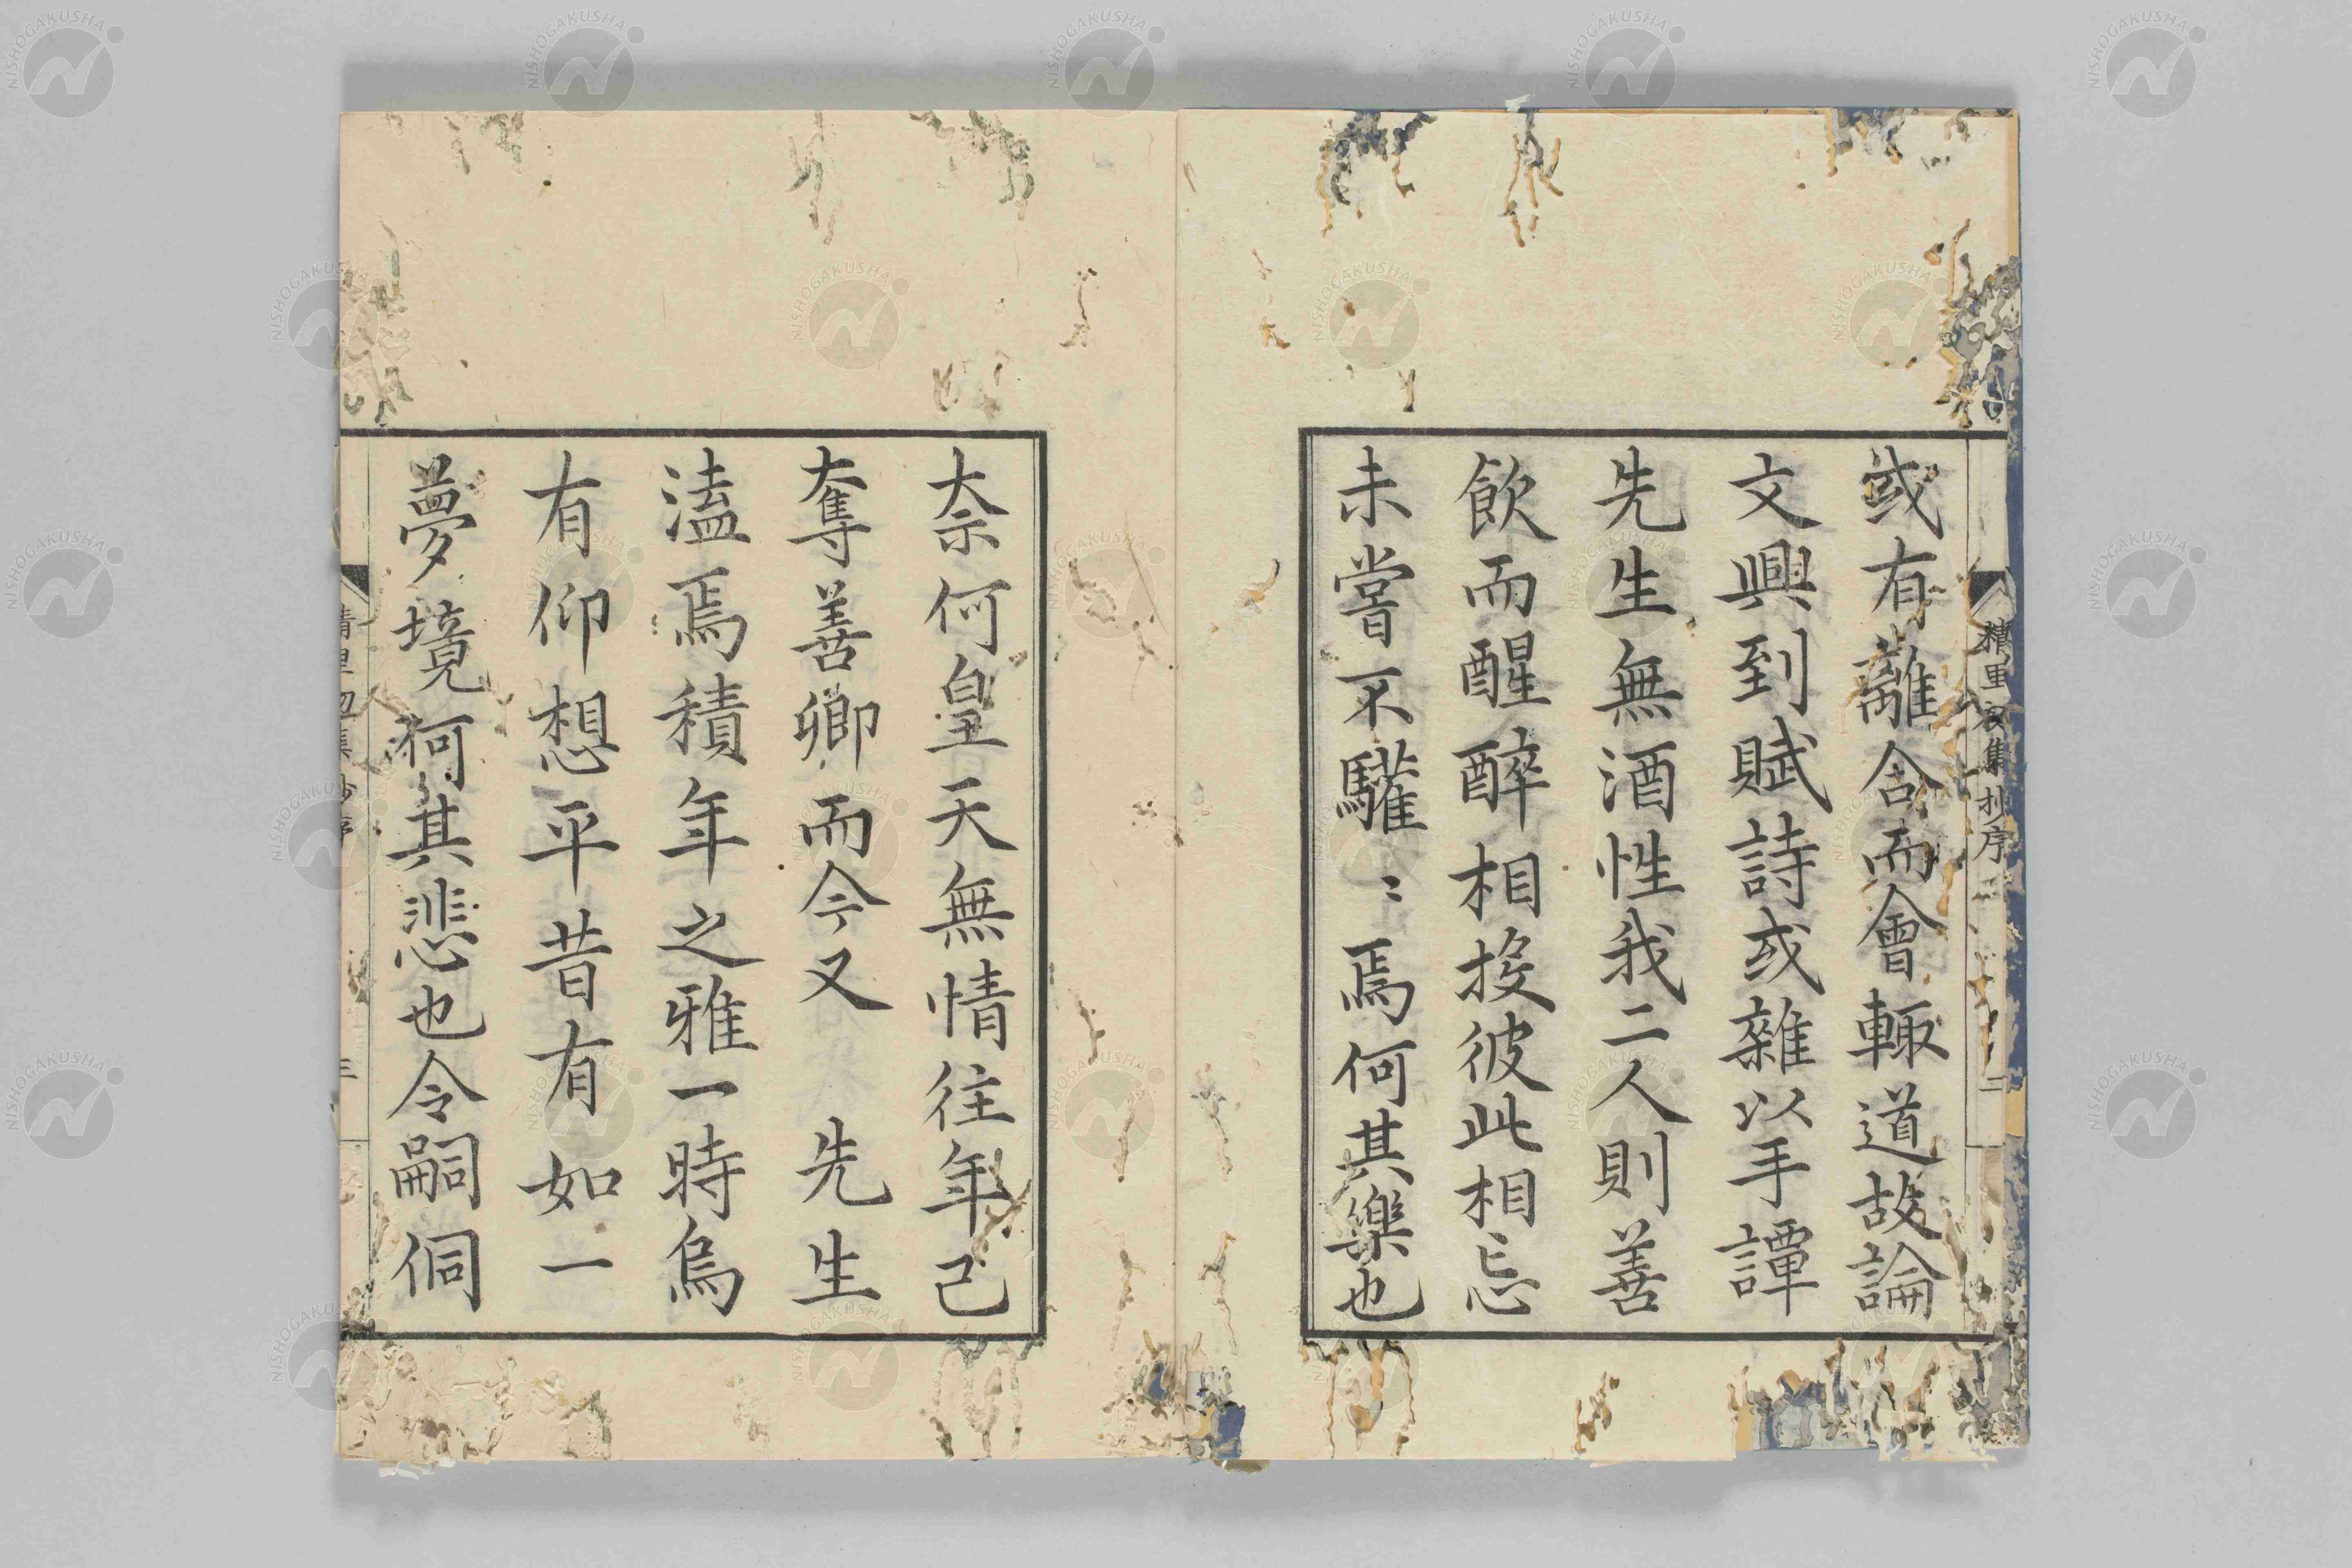 精里初集抄序
二
或有離舍而會輙道故論
文興到賦詩或雜以手譚
先生無酒性我二人則善
飲而醒醉相投彼此相忘
未嘗不驩〻焉何其樂也
奈何皇天無情往年已
奪善卿而今又　先生
溘焉積年之雅一時烏
有仰想平昔有如一
夢境何其悲也令嗣侗
三
NISHOGAKUSHA